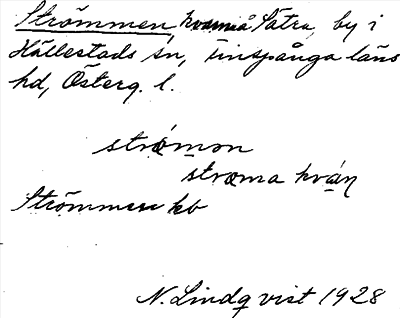 Strömmen, kvarn å Sätra, by i
Hällestads sn, Finspånga läns
hd, Österg. l.
strǿmon
strøma kván
Strömmen kb
N. Lindqvist 1928